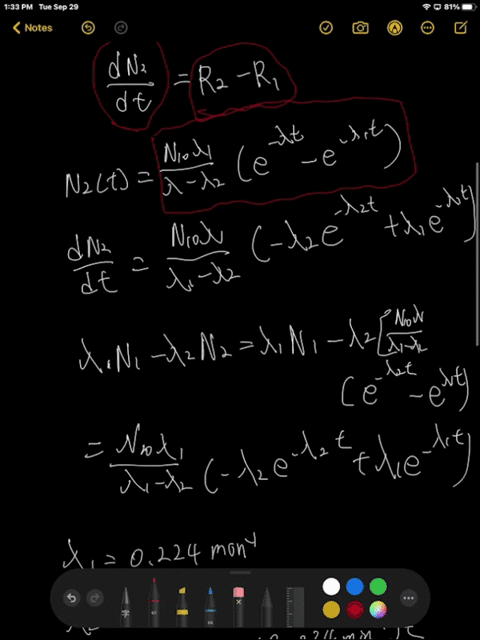 1:33 PM Tue Sep 29
81%
Notes
dN₂/dt = R₂ - R₁
N₂(t) = N₁₀λ₁/λ-λ₂ (e^-λt - e^-λ₁t)
dN₂/dt = N₁₀λ/λ₁-λ₂ (-λ₂e^-λ₂t + λ₁e^-λ₁t)
λ₁N₁ - λ₂N₂ = λ₁N₁ - λ₂[N₁₀λ₁/λ₁-λ₂
(e^-λ₂t - e^-λ₁t)
= N₁₀λ₁/λ₁-λ₂ (-λ₂e^-λ₂t + λ₁e^-λ₁t)
λ₁ = 0.224 mon⁻¹